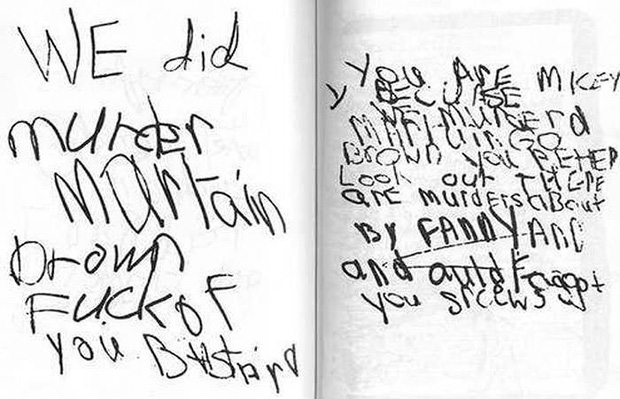 WE did
murder
martain
brown
Fuckof
you BAstArd
You ArE micEy
y BECUASE
WE murdErd
MArtain GO
Brown you BETEr
Look out THErE
arE murdErs about
By FANNYAND
and auld Faggot
you srcews